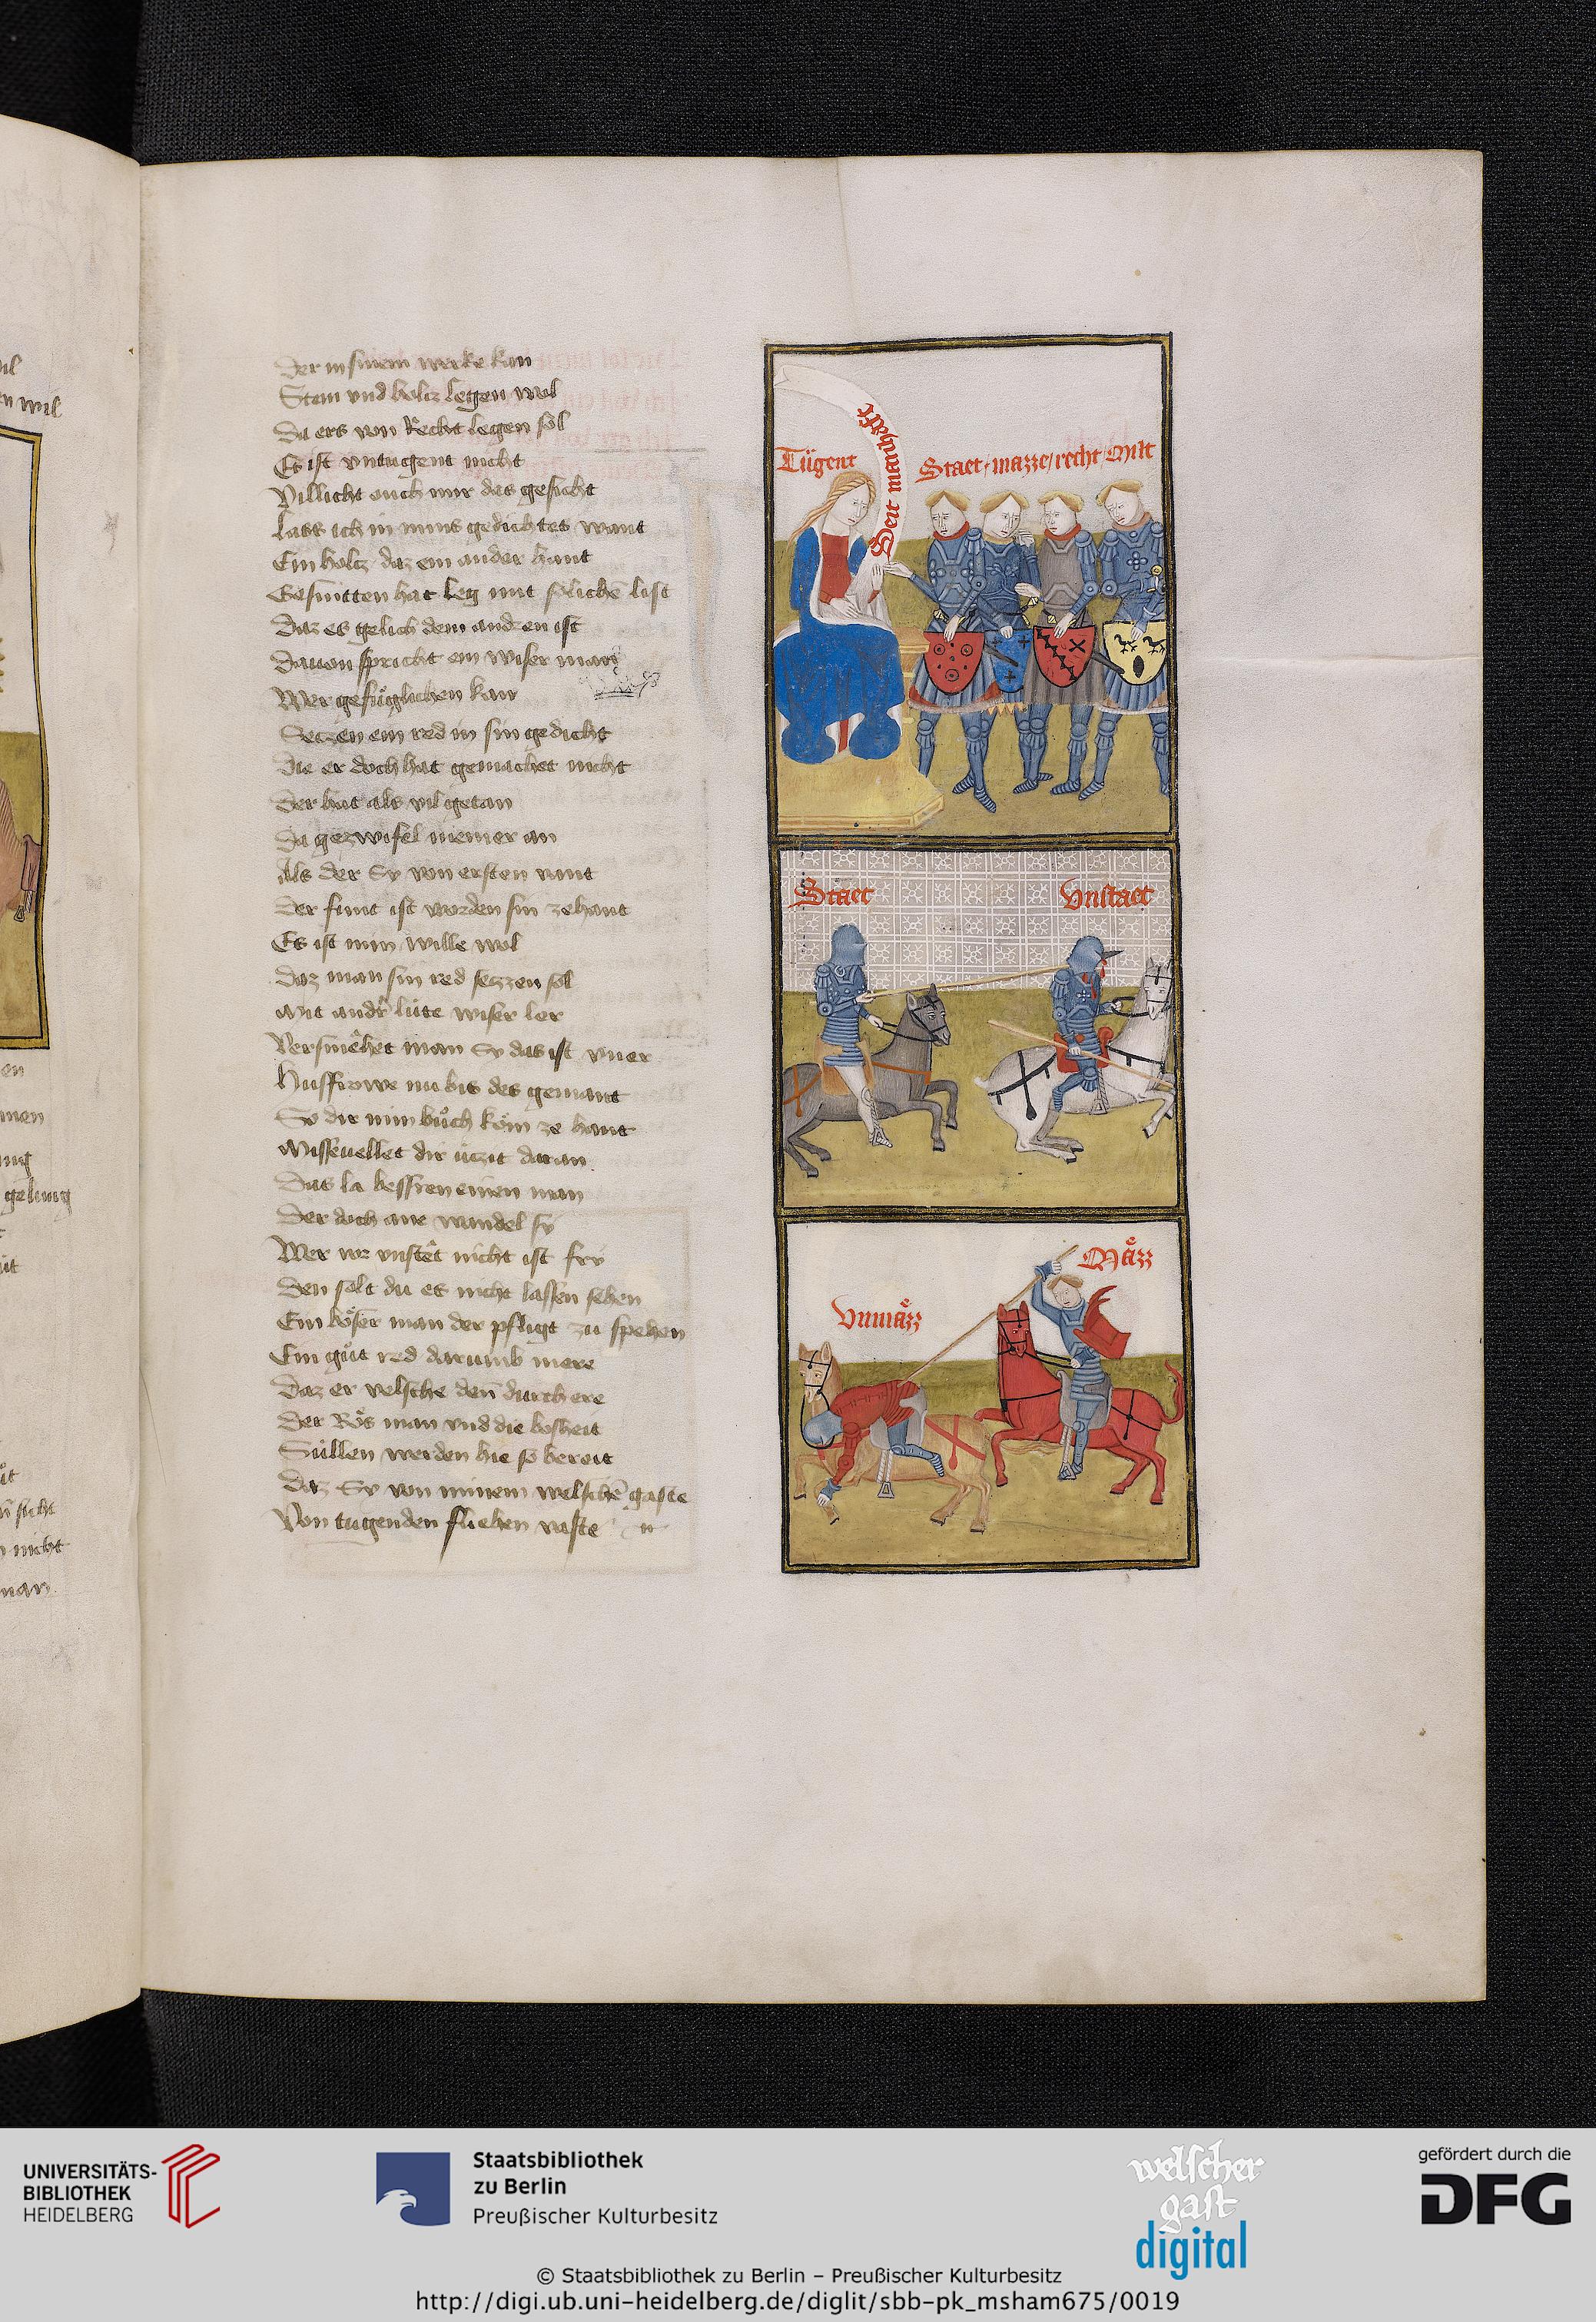 Der in sinem werke kan
Stein vnd holtz legen wol
Da ers von Recht legen sol
Es ist vntugent nicht
Villicht ouch mir des gesicht
Lass ich in mins gedichtes want
Ein holtz daz ein ander hant
Gesnitten hat leg mit solichē list
Daz es gelich dem andren ist
Dauon spricht ein wiser man
Wer gefůglichen kan
Setzen ein red in sin gedicht
Die er doch hat gemachet nicht
Der hat als vil getan
Da gezwifel niemer an
Als der Sy von ersten vant
Der funt ist worden sin zehant
Es ist min wille wol
Daz man sin red setzen sol
Mit andr lüte wiser ler
Versmêhet man Sy das ist vner
Husfrowe nu bis des gemant
So dir min bůch kom ze hant
Missevellet dir ützit daran
Das la bessren einen man
Der doch ane wandel sy
Wer vor vnstêt nicht ist fry
Den solt du es nicht lassen sehen
Ein böser man der pfligt zu spehen
Ein gůt red darumb mere
Daz er velsche den durch ere
Der Bös man vnd die bosheit
Süllen werden hie so bereit
Daz Sy von minem welschē gaste
Von tugenden fliehen vaste
Tügent
Seit manhaft
Staet / mazze / recht / Milt
Staet
Vnstaet
Mäzz
Vnmäzz
il
n wil
en
nen
ung
gelung
üt
n sicht
nicht
man
UNIVERSITÄTS-
BIBLIOTHEK
HEIDELBERG
Staatsbibliothek
zu Berlin
Preußischer Kulturbesitz
welscher
gast
digital
gefördert durch die
DFG
© Staatsbibliothek zu Berlin – Preußischer Kulturbesitz
http://digi.ub.uni-heidelberg.de/diglit/sbb-pk_msham675/0019